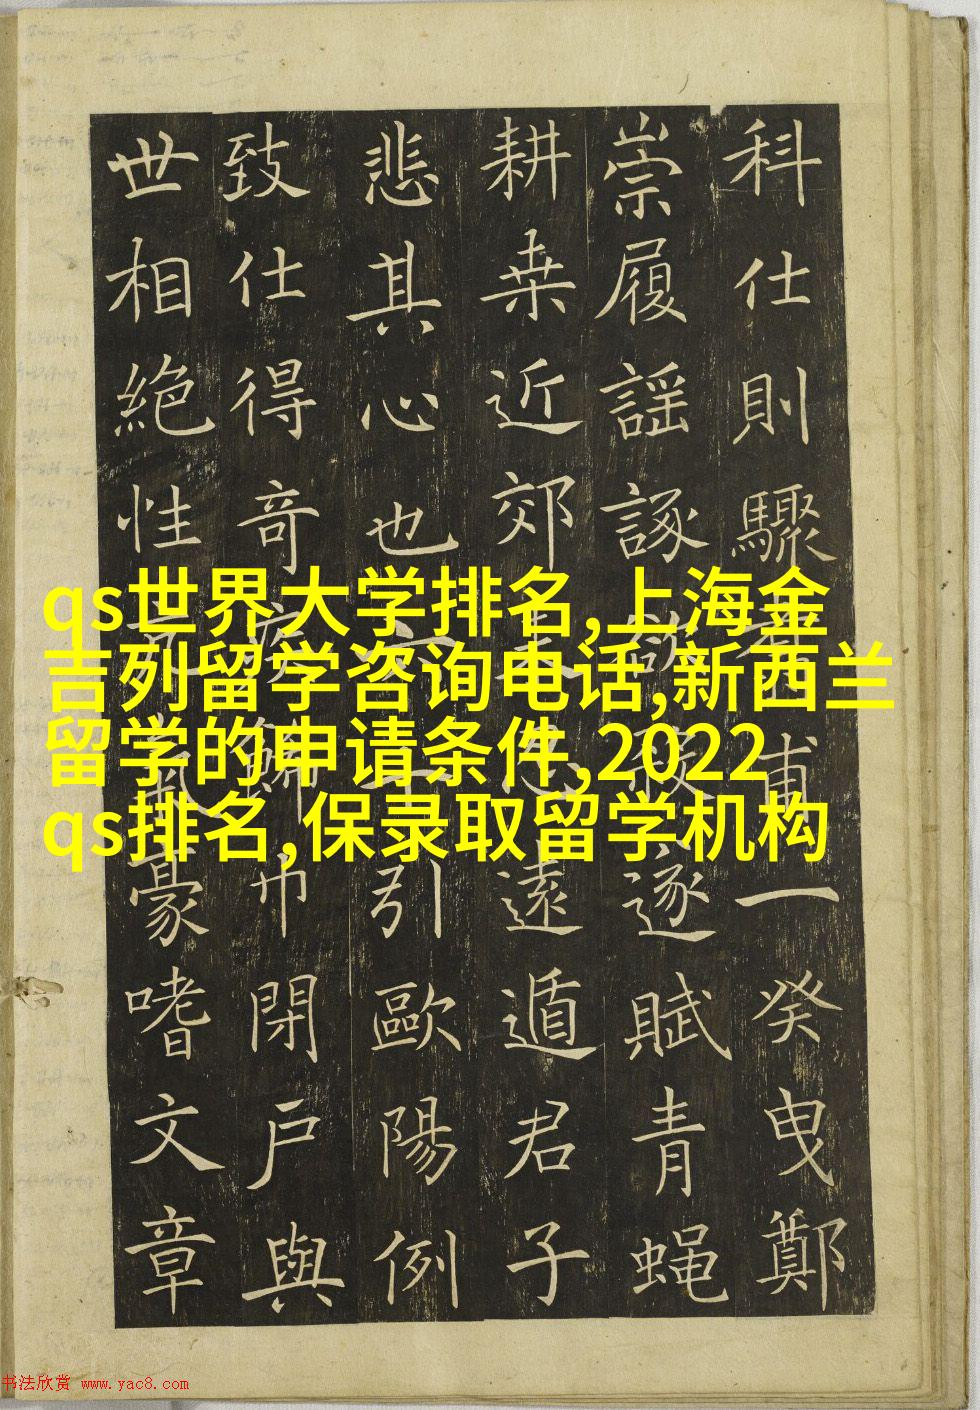 科仕則驟一癸曳鄭
崇履謡諑逐賦青蝿
耕桒近郊遠遁君子
悲其心也引歐陽例
致仕得奇疾巾閉戶與
世相絶性豪嗜文章
qs世界大学排名,上海金
吉列留学咨询电话,新西兰
留学的申请条件,2022
qs排名,保录取留学机构
书法欣赏 www.yac8.com